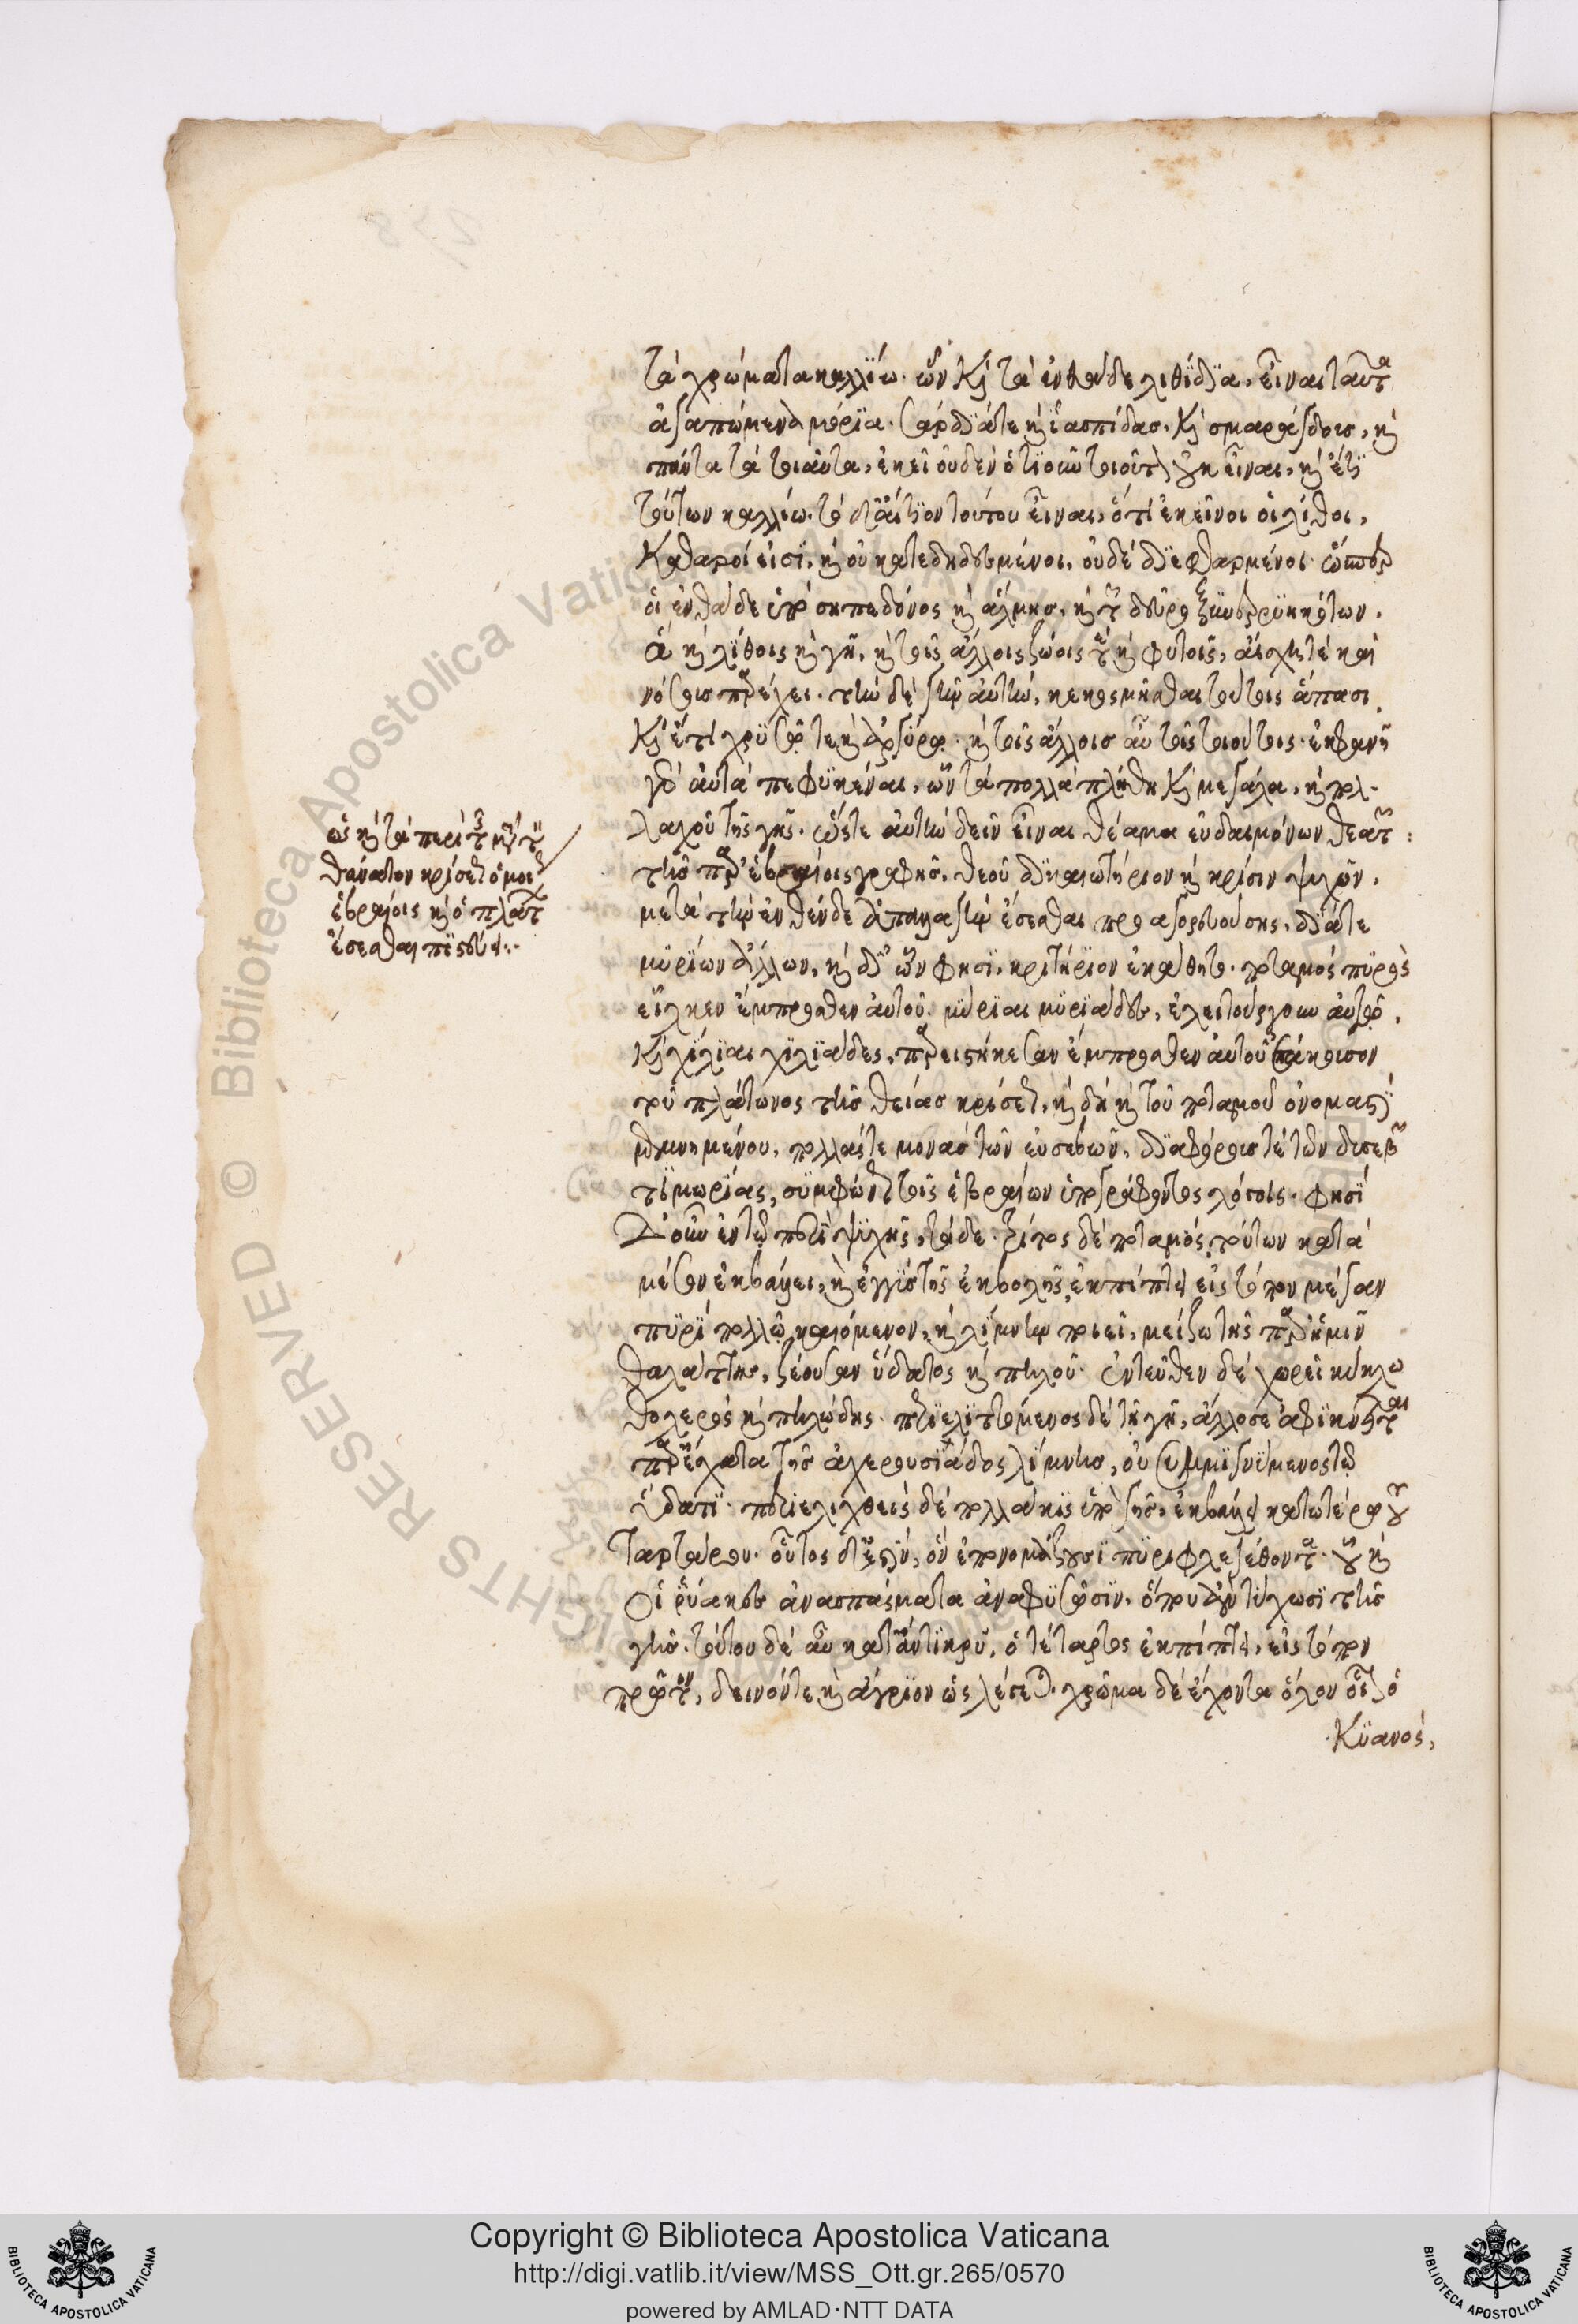 τὰ χρώματα καλλίω. ὧν καὶ τὰ ἐνθάδε λιθίδια, εἶναι ταῦτα
ἀγαπώμενα μόρια. σάρδιά τε καὶ ἰάσπιδας. καὶ σμαράγδους, καὶ
πάντα τὰ τοιαῦτα, ἐκεῖ οὐδὲν ὅτι οὐ τοιοῦτον εἶναι, καὶ ἔτι
τούτων καλλίω. τὸ δ' αἴτιον τούτου εἶναι, ὅτι ἐκεῖνοι οἱ λίθοι,
καθαροί εἰσι, καὶ οὐ κατεδηδεσμένοι, οὐδὲ διεφθαρμένοι ὥσπερ
οἱ ἐνθάδε ὑπὸ σηπεδόνος καὶ ἅλμης, καὶ τῶν δεῦρο ξυνερρυηκότων.
ἃ καὶ λίθοις καὶ γῇ, καὶ τοῖς ἄλλοις ζώοις τε καὶ φυτοῖς, αἴσχη τε καὶ
νόσους παρέχει. τὴν δὲ γῆν αὐτὴν, κεκοσμῆσθαι τούτοις ἅπασι,
καὶ ἔτι χρυσῷ τε καὶ ἀργύρῳ. καὶ τοῖς ἄλλοις αὖ τοῖς τοιούτοις. ἐκφανῆ
γὰρ αὐτὰ πεφυκέναι, ὄντα πολλὰ πλήθη καὶ μεγάλα, καὶ πολ-
λαχοῦ τῆς γῆς. ὥστε αὐτὴν δεῖν εἶναι θέαμα εὐδαιμόνων θεατῶν:
τῆς παρ' ἑβραίοις γραφῆς, θεοῦ δικαιωτήριον καὶ κρίσιν ψυχῶν,
μετὰ τὴν ἐνθένδε ἀπαλλαγὴν ἔσεσθαι προαγορευούσης, διά τε
μυρίων ἄλλων, καὶ δι' ὧν φησι, κριτήριον ἐκάθητο. ποταμὸς πυρὸς
εἷλκεν ἔμπροσθεν αὐτοῦ. μύριαι μυριάδες, ἐλειτούργουν αὐτῷ,
καὶ χίλιαι χιλιάδες, παρειστήκεισαν ἔμπροσθεν αὐτοῦ ἐπάκουσον
τοῦ πλάτωνος τῆς θείας κρίσεως, καὶ δὴ καὶ τοῦ ποταμοῦ ὀνομαστὶ
μεμνημένου, πολλάς τε μονὰς τῶν εὐσεβῶν, διαφόρους τε τῶν ἀσεβῶν
τιμωρίας, συμφώνως τοῖς ἑβραίων ὑπογράφοντος λόγοις. φησὶ
δ' οὖν ἐν τῷ περὶ ψυχῆς, τάδε. τρίτος δὲ ποταμὸς τούτων κατὰ
μέσον ἐκβάλλει, καὶ ἐγγὺς τῆς ἐκβολῆς, ἐκπίπτει εἰς τόπον μέγαν
πυρὶ πολλῷ καιόμενον, καὶ λίμνην ποιεῖ, μείζω τῆς παρ' ἡμῖν
θαλάττης, ζέουσαν ὕδατος καὶ πηλοῦ. ἐντεῦθεν δὲ χωρεῖ κύκλῳ
θολερὸς καὶ πηλώδης. περιελιττόμενος δὲ τῇ γῇ, ἄλλοσε ἀφικνεῖται
παρ' ἔσχατα τῆς ἀχερουσιάδος λίμνης, οὐ συμμιγνύμενος τῷ
ὕδατι. περιελιχθεὶς δὲ πολλάκις ὑπὸ γῆς, ἐκβάλλει κατωτέρω τοῦ
ταρτάρου. οὗτος δ' ἐστὶν, ὃν ἐπονομάζουσι πυριφλεγέθοντα. οὗ καὶ
οἱ ῥύακες ἀνασπάσματα ἀναφυσῶσιν, ὅπου ἂν τύχωσι τῆς
γῆς. τούτου δὲ αὖ καταντικρὺ, ὁ τέταρτος ἐκπίπτει, εἰς τόπον
πρῶτον, δεινόν τε καὶ ἄγριον ὡς λέγεται. χρῶμα δὲ ἔχοντα ὅλον οἷον ὁ
Κυανὸς,
ὡς καὶ τὰ περὶ τῆς μετὰ τὸν
θάνατον κρίσεως ὁμοίως
ἑβραίοις καὶ ὁ πλάτων
ἔσεσθαι πιστεύει:-